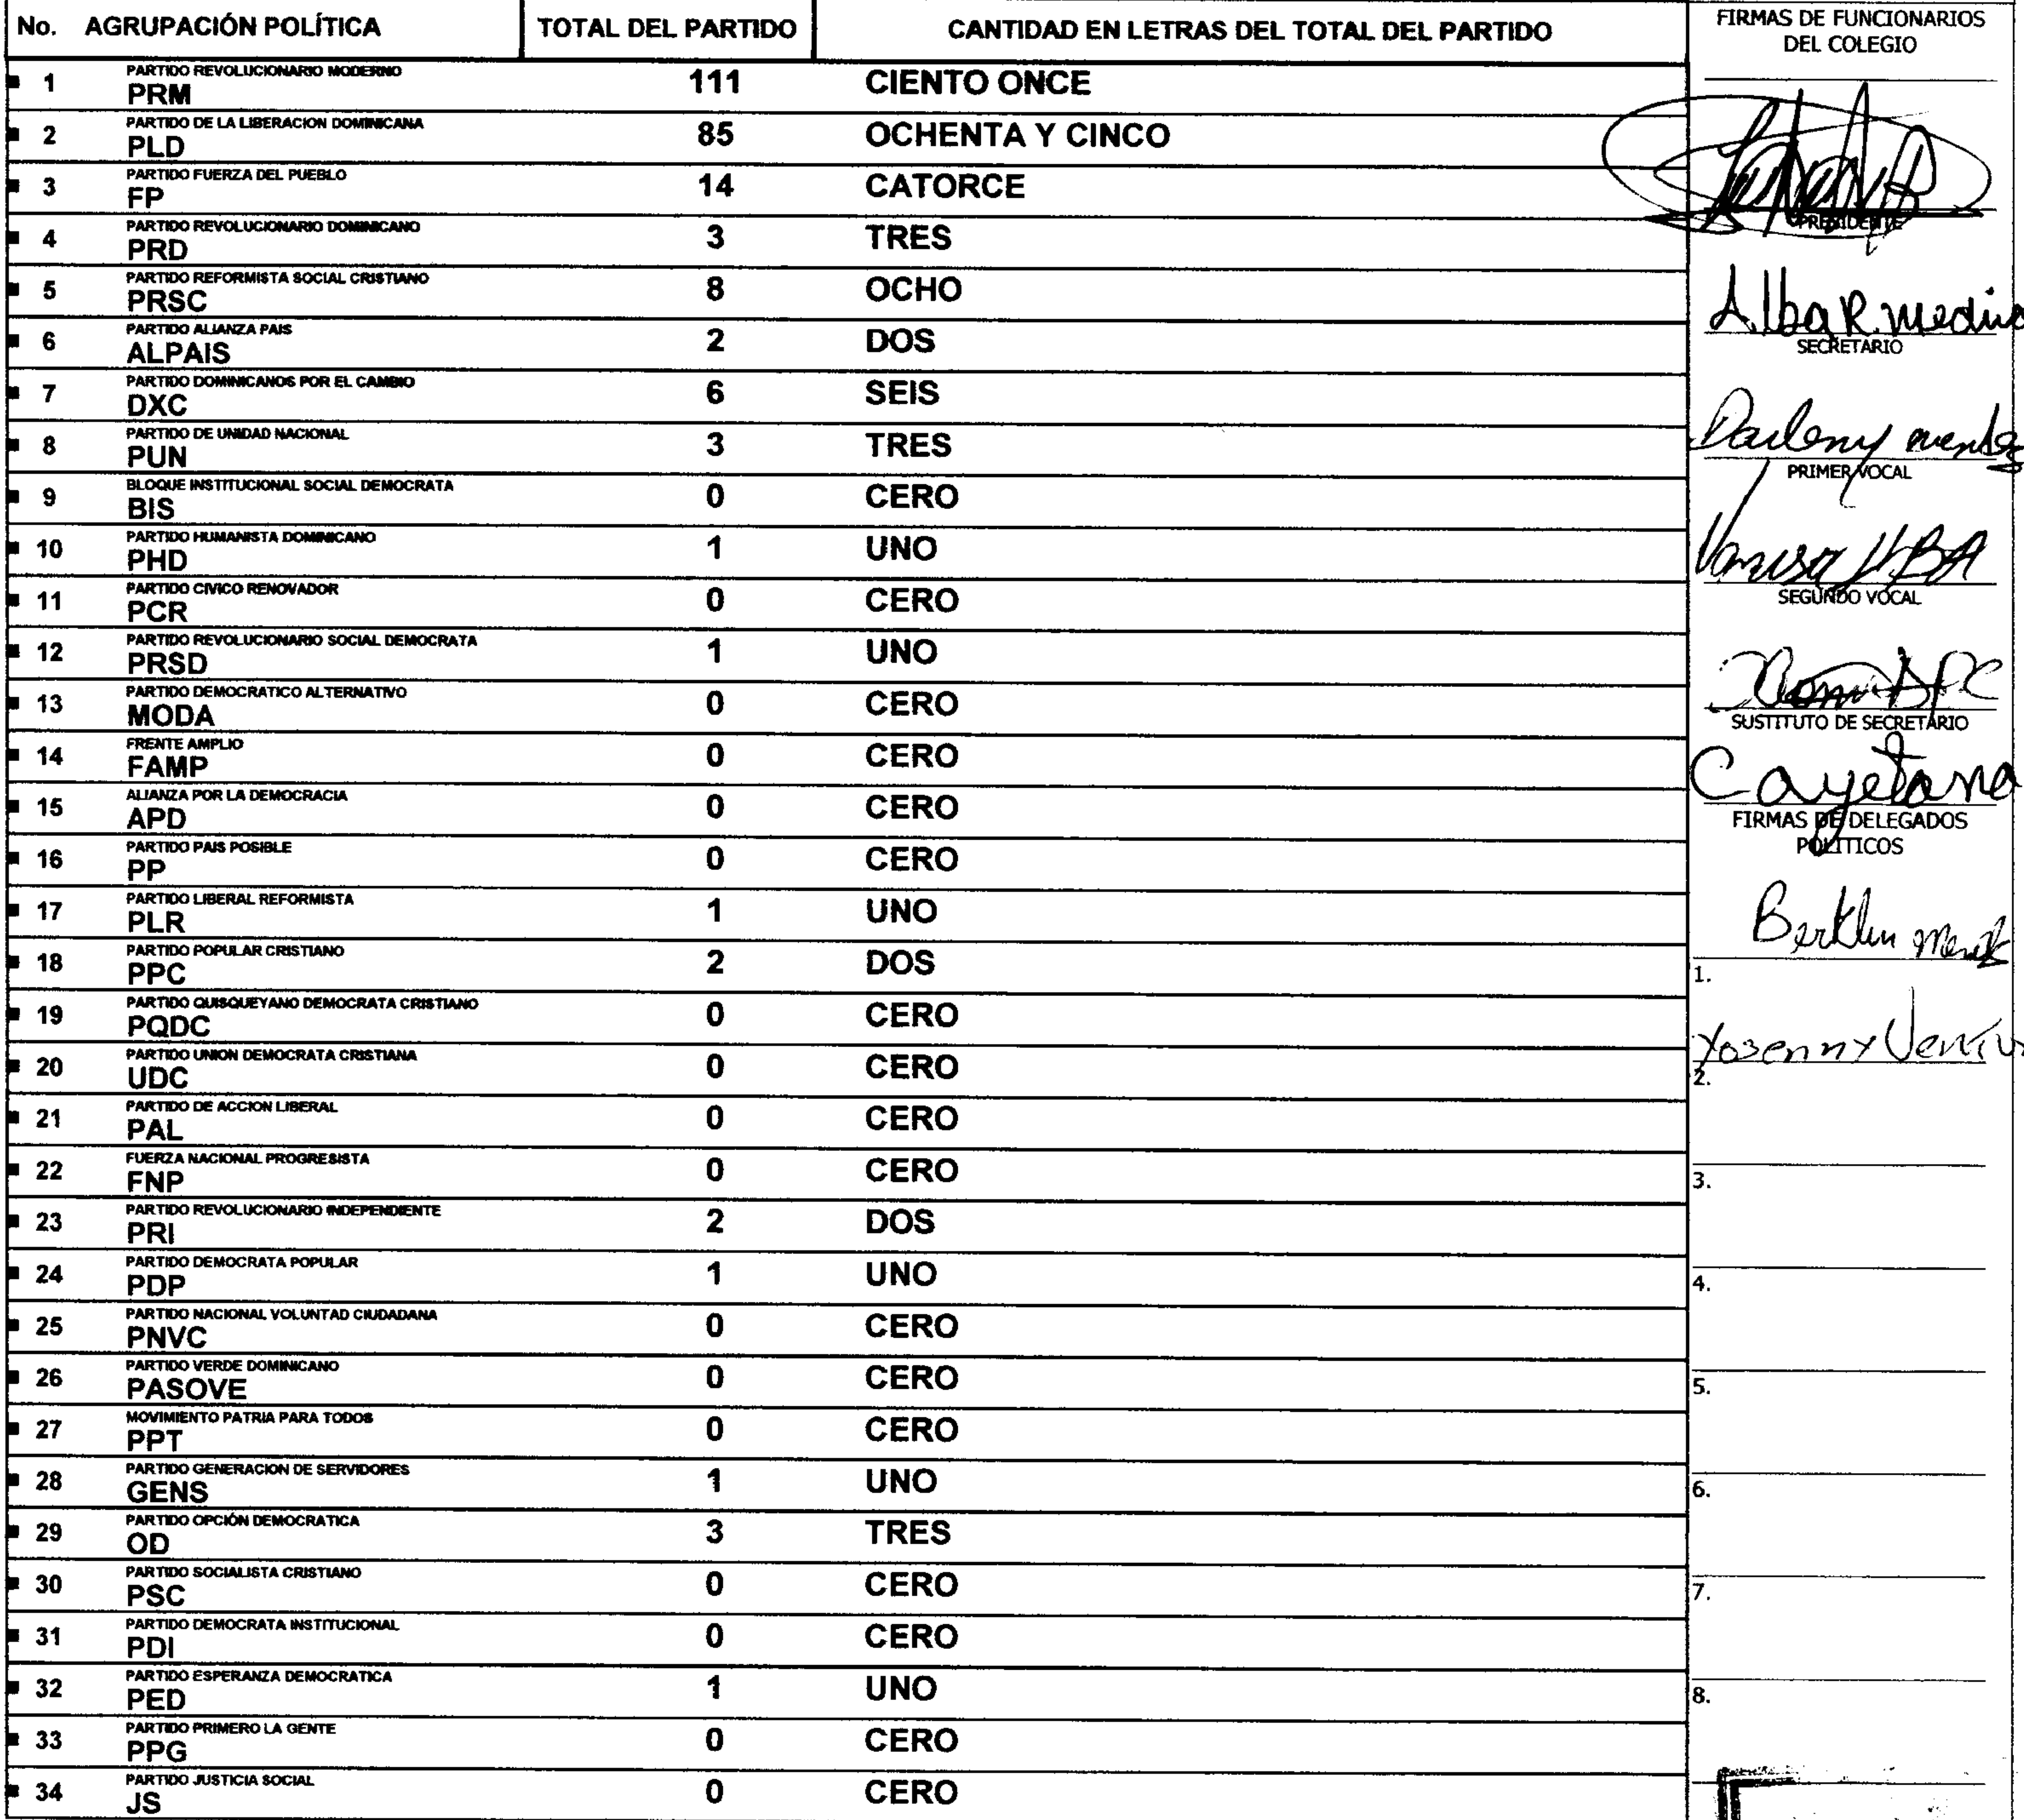 No. AGRUPACIÓN POLÍTICA TOTAL DEL PARTIDO CANTIDAD EN LETRAS DEL TOTAL DEL PARTIDO
PARTIDO REVOLUCIONARIO MODERNO
1 PRM 111 CIENTO ONCE
PARTIDO DE LA LIBERACION DOMINICANA
2 PLD 85 OCHENTA Y CINCO
PARTIDO FUERZA DEL PUEBLO
3 FP 14 CATORCE
PARTIDO REVOLUCIONARIO DOMINICANO
4 PRD 3 TRES
PARTIDO REFORMISTA SOCIAL CRISTIANO
5 PRSC 8 OCHO
PARTIDO ALIANZA PAIS
6 ALPAIS 2 DOS
PARTIDO DOMINICANOS POR EL CAMBIO
7 DXC 6 SEIS
PARTIDO DE UNIDAD NACIONAL
8 PUN 3 TRES
BLOQUE INSTITUCIONAL SOCIAL DEMOCRATA
9 BIS 0 CERO
PARTIDO HUMANISTA DOMINICANO
10 PHD 1 UNO
PARTIDO CIVICO RENOVADOR
11 PCR 0 CERO
PARTIDO REVOLUCIONARIO SOCIAL DEMOCRATA
12 PRSD 1 UNO
PARTIDO DEMOCRATICO ALTERNATIVO
13 MODA 0 CERO
FRENTE AMPLIO
14 FAMP 0 CERO
ALIANZA POR LA DEMOCRACIA
15 APD 0 CERO
PARTIDO PAIS POSIBLE
16 PP 0 CERO
PARTIDO LIBERAL REFORMISTA
17 PLR 1 UNO
PARTIDO POPULAR CRISTIANO
18 PPC 2 DOS
PARTIDO QUISQUEYANO DEMOCRATA CRISTIANO
19 PQDC 0 CERO
PARTIDO UNION DEMOCRATA CRISTIANA
20 UDC 0 CERO
PARTIDO DE ACCION LIBERAL
21 PAL 0 CERO
FUERZA NACIONAL PROGRESISTA
22 FNP 0 CERO
PARTIDO REVOLUCIONARIO INDEPENDIENTE
23 PRI 2 DOS
PARTIDO DEMOCRATA POPULAR
24 PDP 1 UNO
PARTIDO NACIONAL VOLUNTAD CIUDADANA
25 PNVC 0 CERO
PARTIDO VERDE DOMINICANO
26 PASOVE 0 CERO
MOVIMIENTO PATRIA PARA TODOS
27 PPT 0 CERO
PARTIDO GENERACION DE SERVIDORES
28 GENS 1 UNO
PARTIDO OPCIÓN DEMOCRATICA
29 OD 3 TRES
PARTIDO SOCIALISTA CRISTIANO
30 PSC 0 CERO
PARTIDO DEMOCRATA INSTITUCIONAL
31 PDI 0 CERO
PARTIDO ESPERANZA DEMOCRATICA
32 PED 1 UNO
PARTIDO PRIMERO LA GENTE
33 PPG 0 CERO
PARTIDO JUSTICIA SOCIAL
34 JS 0 CERO
FIRMAS DE FUNCIONARIOS
DEL COLEGIO
PRESIDENTE
Alba R. medina
SECRETARIO
Darleny
PRIMER VOCAL
SEGUNDO VOCAL
SUSTITUTO DE SECRETARIO
Cayetana
FIRMAS DE DELEGADOS
POLÍTICOS
1.
Yosenny
2.
3.
4.
5.
6.
7.
8.